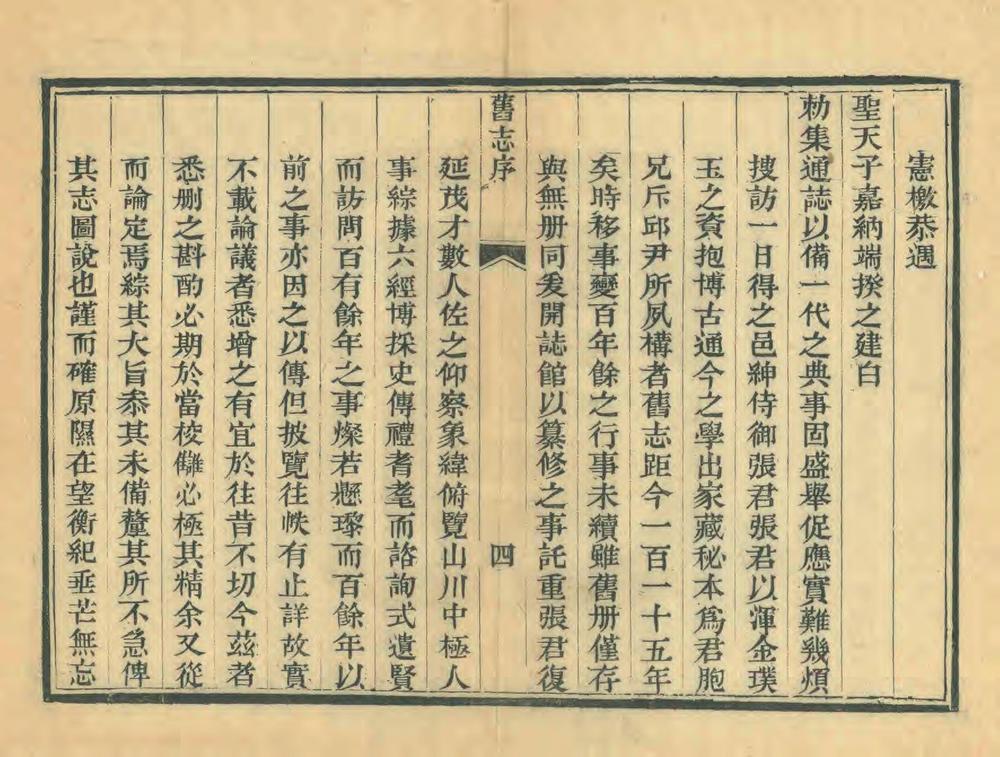 憲檄恭遇
聖天子嘉納端揆之建白
勅集通誌以備一代之典事固盛舉促應實難幾煩
搜訪一日得之邑紳侍御張君張君以渾金璞
玉之資抱博古通今之學出家藏秘本爲君胞
兄斥邱尹所夙構者舊志距今一百一十五年
矣時移事變百年餘之行事未續雖舊册僅存
與無册同爰開誌館以纂修之事託重張君復
舊志序
四
延茂才數人佐之仰察象緯俯覽山川中極人
事綜據六經博採史傳禮耆耄而諮詢式遺賢
而訪問百有餘年之事燦若懸瓈而百餘年以
前之事亦因之以傳但披覽往帙有止詳故實
不載論議者悉增之有宜於往昔不切今茲者
悉删之斟酌必期於當校讎必極其精余又從
而論定焉綜其大旨叅其未備釐其所不急俾
其志圖說也謹而確原隰在望衡紀垂芒無忘